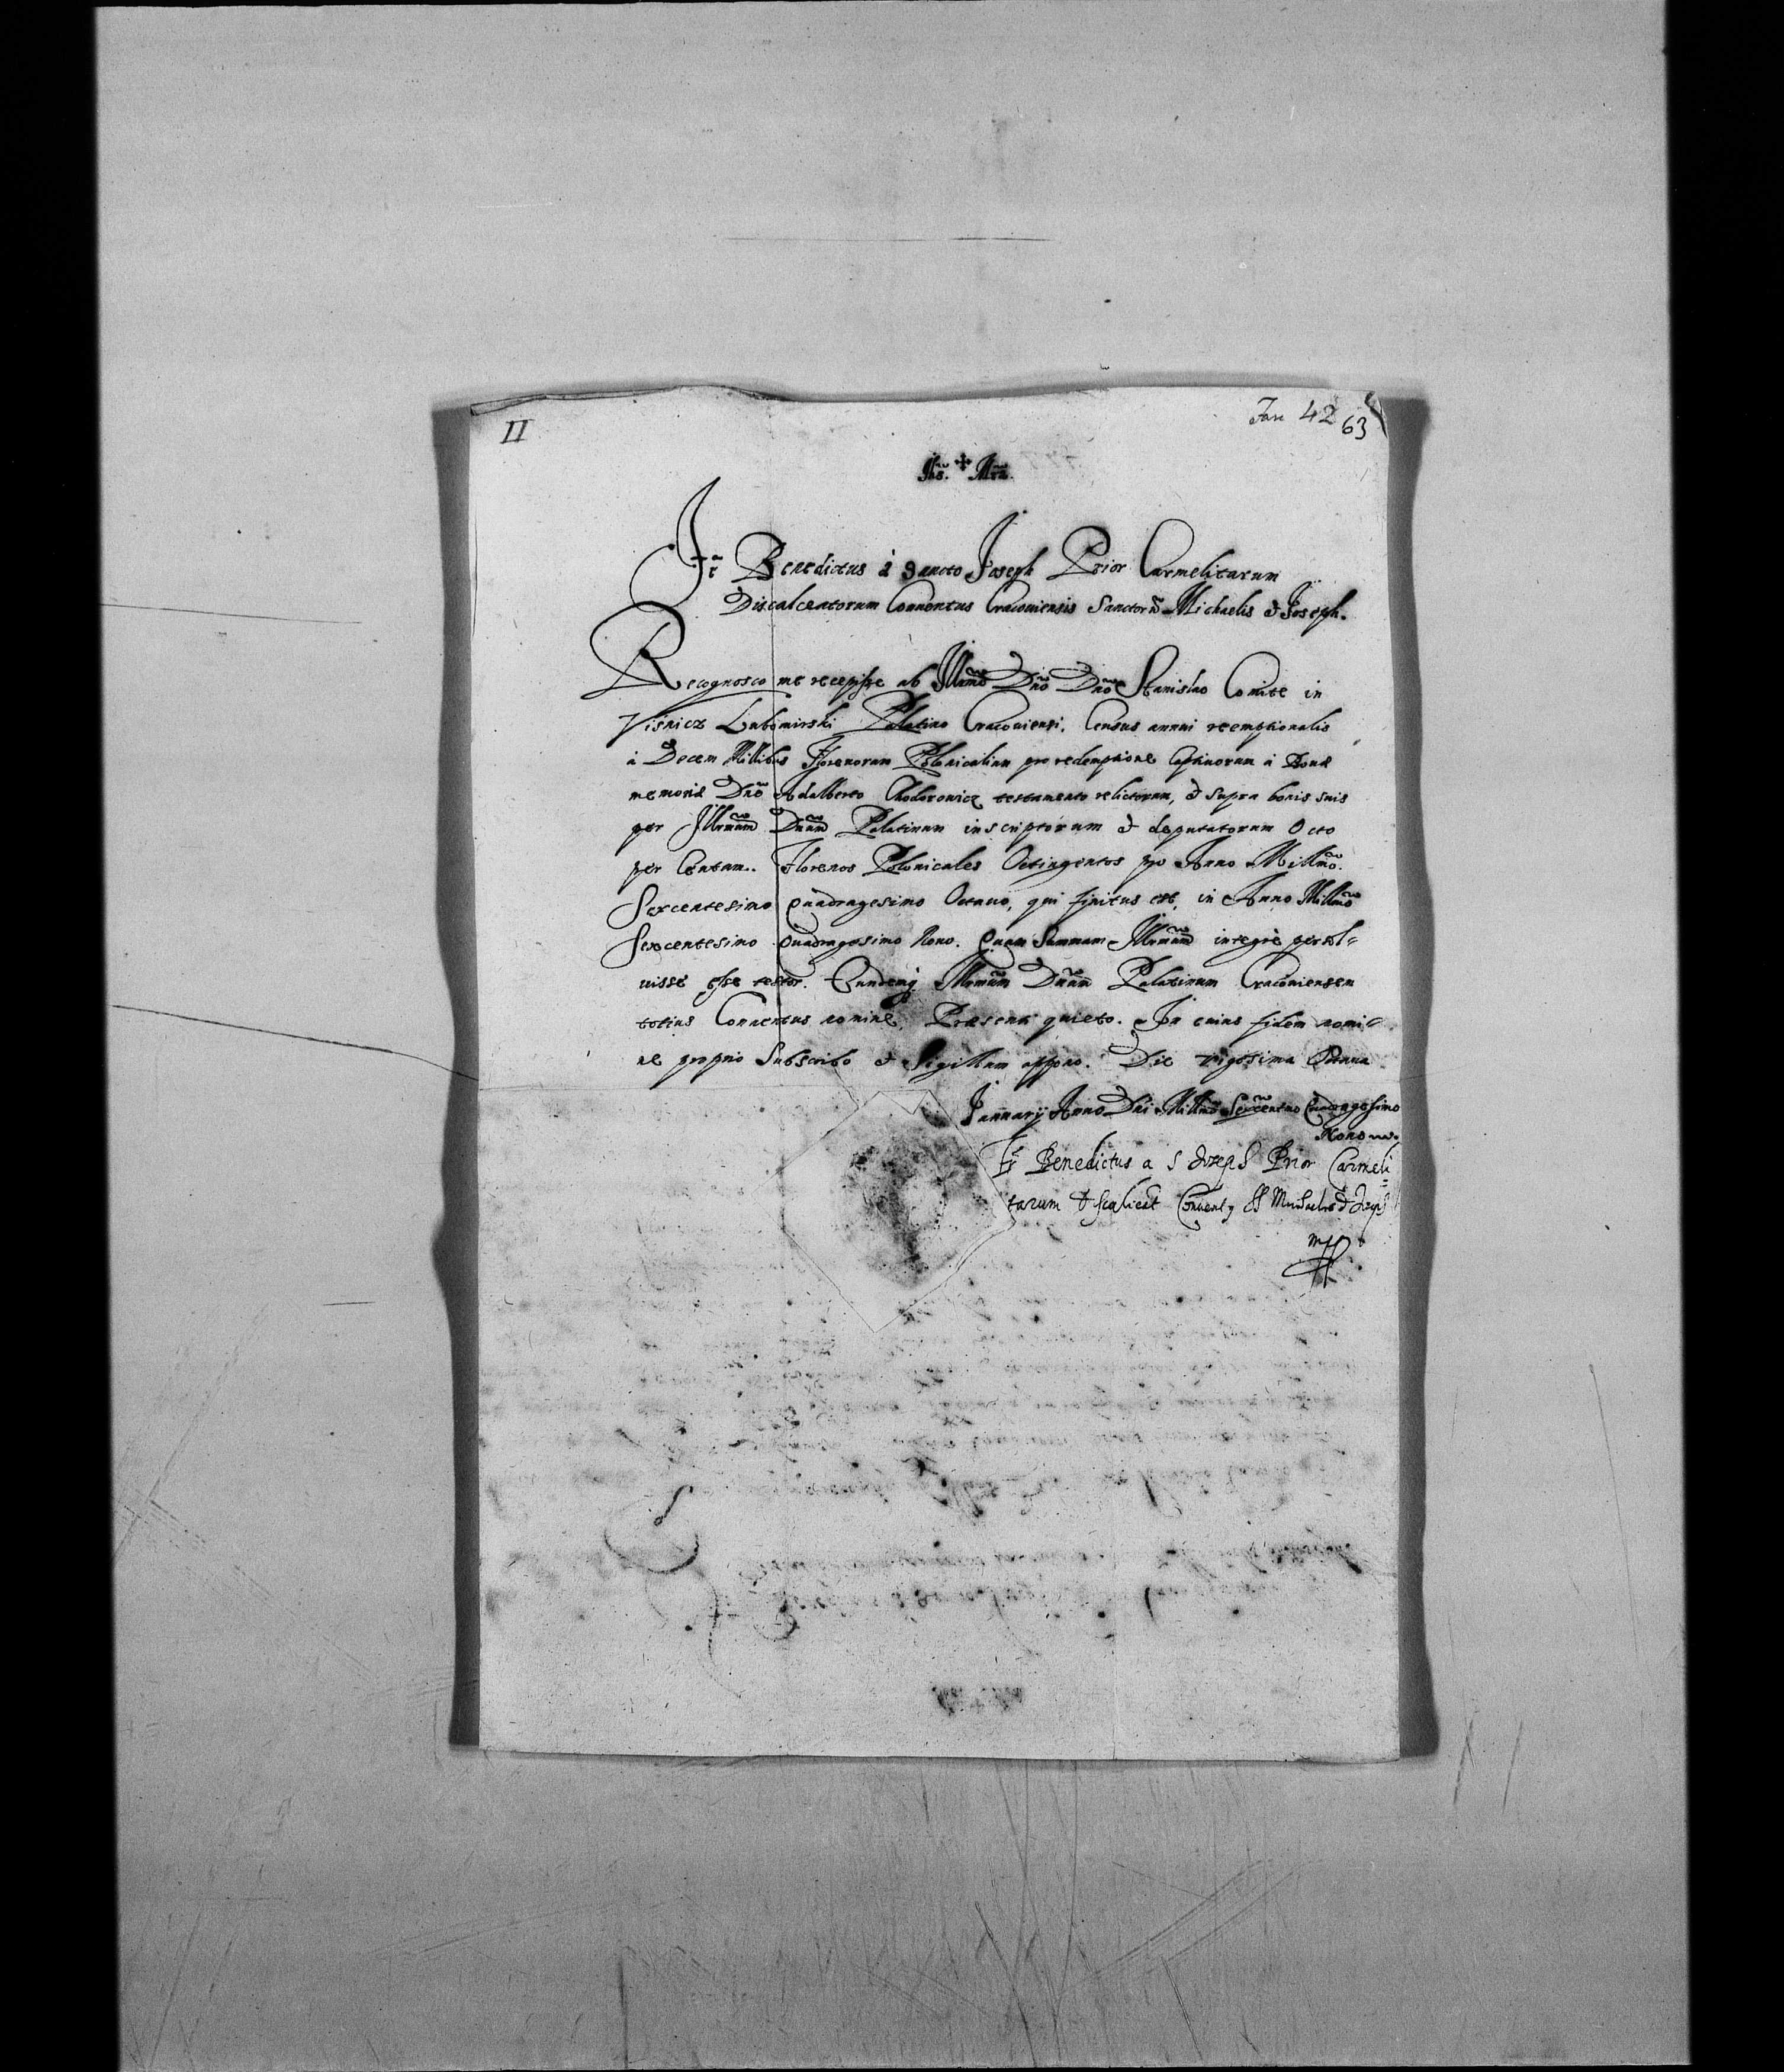 II
Fasc 42 63
Jhs. ✠ Mra.
Fr. Benedictus à Sancto Joseph Prior Carmelitarum
Discalceatorum Conuentus Cracouiensis Sanctorũ Michaelis & Joseph.
Recognosco me recepisse ab Illrmõ Dnõ Dnõ Stanislao Comite in
Visnicz Lubomirski Palatino Cracouiensi. Census annui reemptionalis
à Decem Millibus Florenorum Polonicalium pro redemptione Captiuorum à Bonæ
memoriæ Dnõ Adalberto Chodorowicz testamento relictorum, & supra bonis suis
per Illrmum Dnum Palatinum inscriptorum & deputatorum Octo
per Centum. Florenos Polonicales Octingentos pro Anno Millmõ.
Sexcentesimo Quadragesimo Octauo, qui finitus est, in Anno Millmõ
Sexcentesimo Quadragesimo Nono. Quam Summam Illrmum integrè persol=
uisse esse testor. Eundemq Illrmum Dnum Palatinum Cracouiensem
totius Conuentus nomine, Præsenti quieto. In cuius fidem nomi=
ne proprio Subscribo & Sigillum appono. Die vigesima
Januarij Anno Dni Millmõ Sexcentmo Quadragesimo
Nono
Fr Benedictus a S Joseph Prior Carmeli
tarum discalceat Conuentq SS Michaelis & Joseph
mp